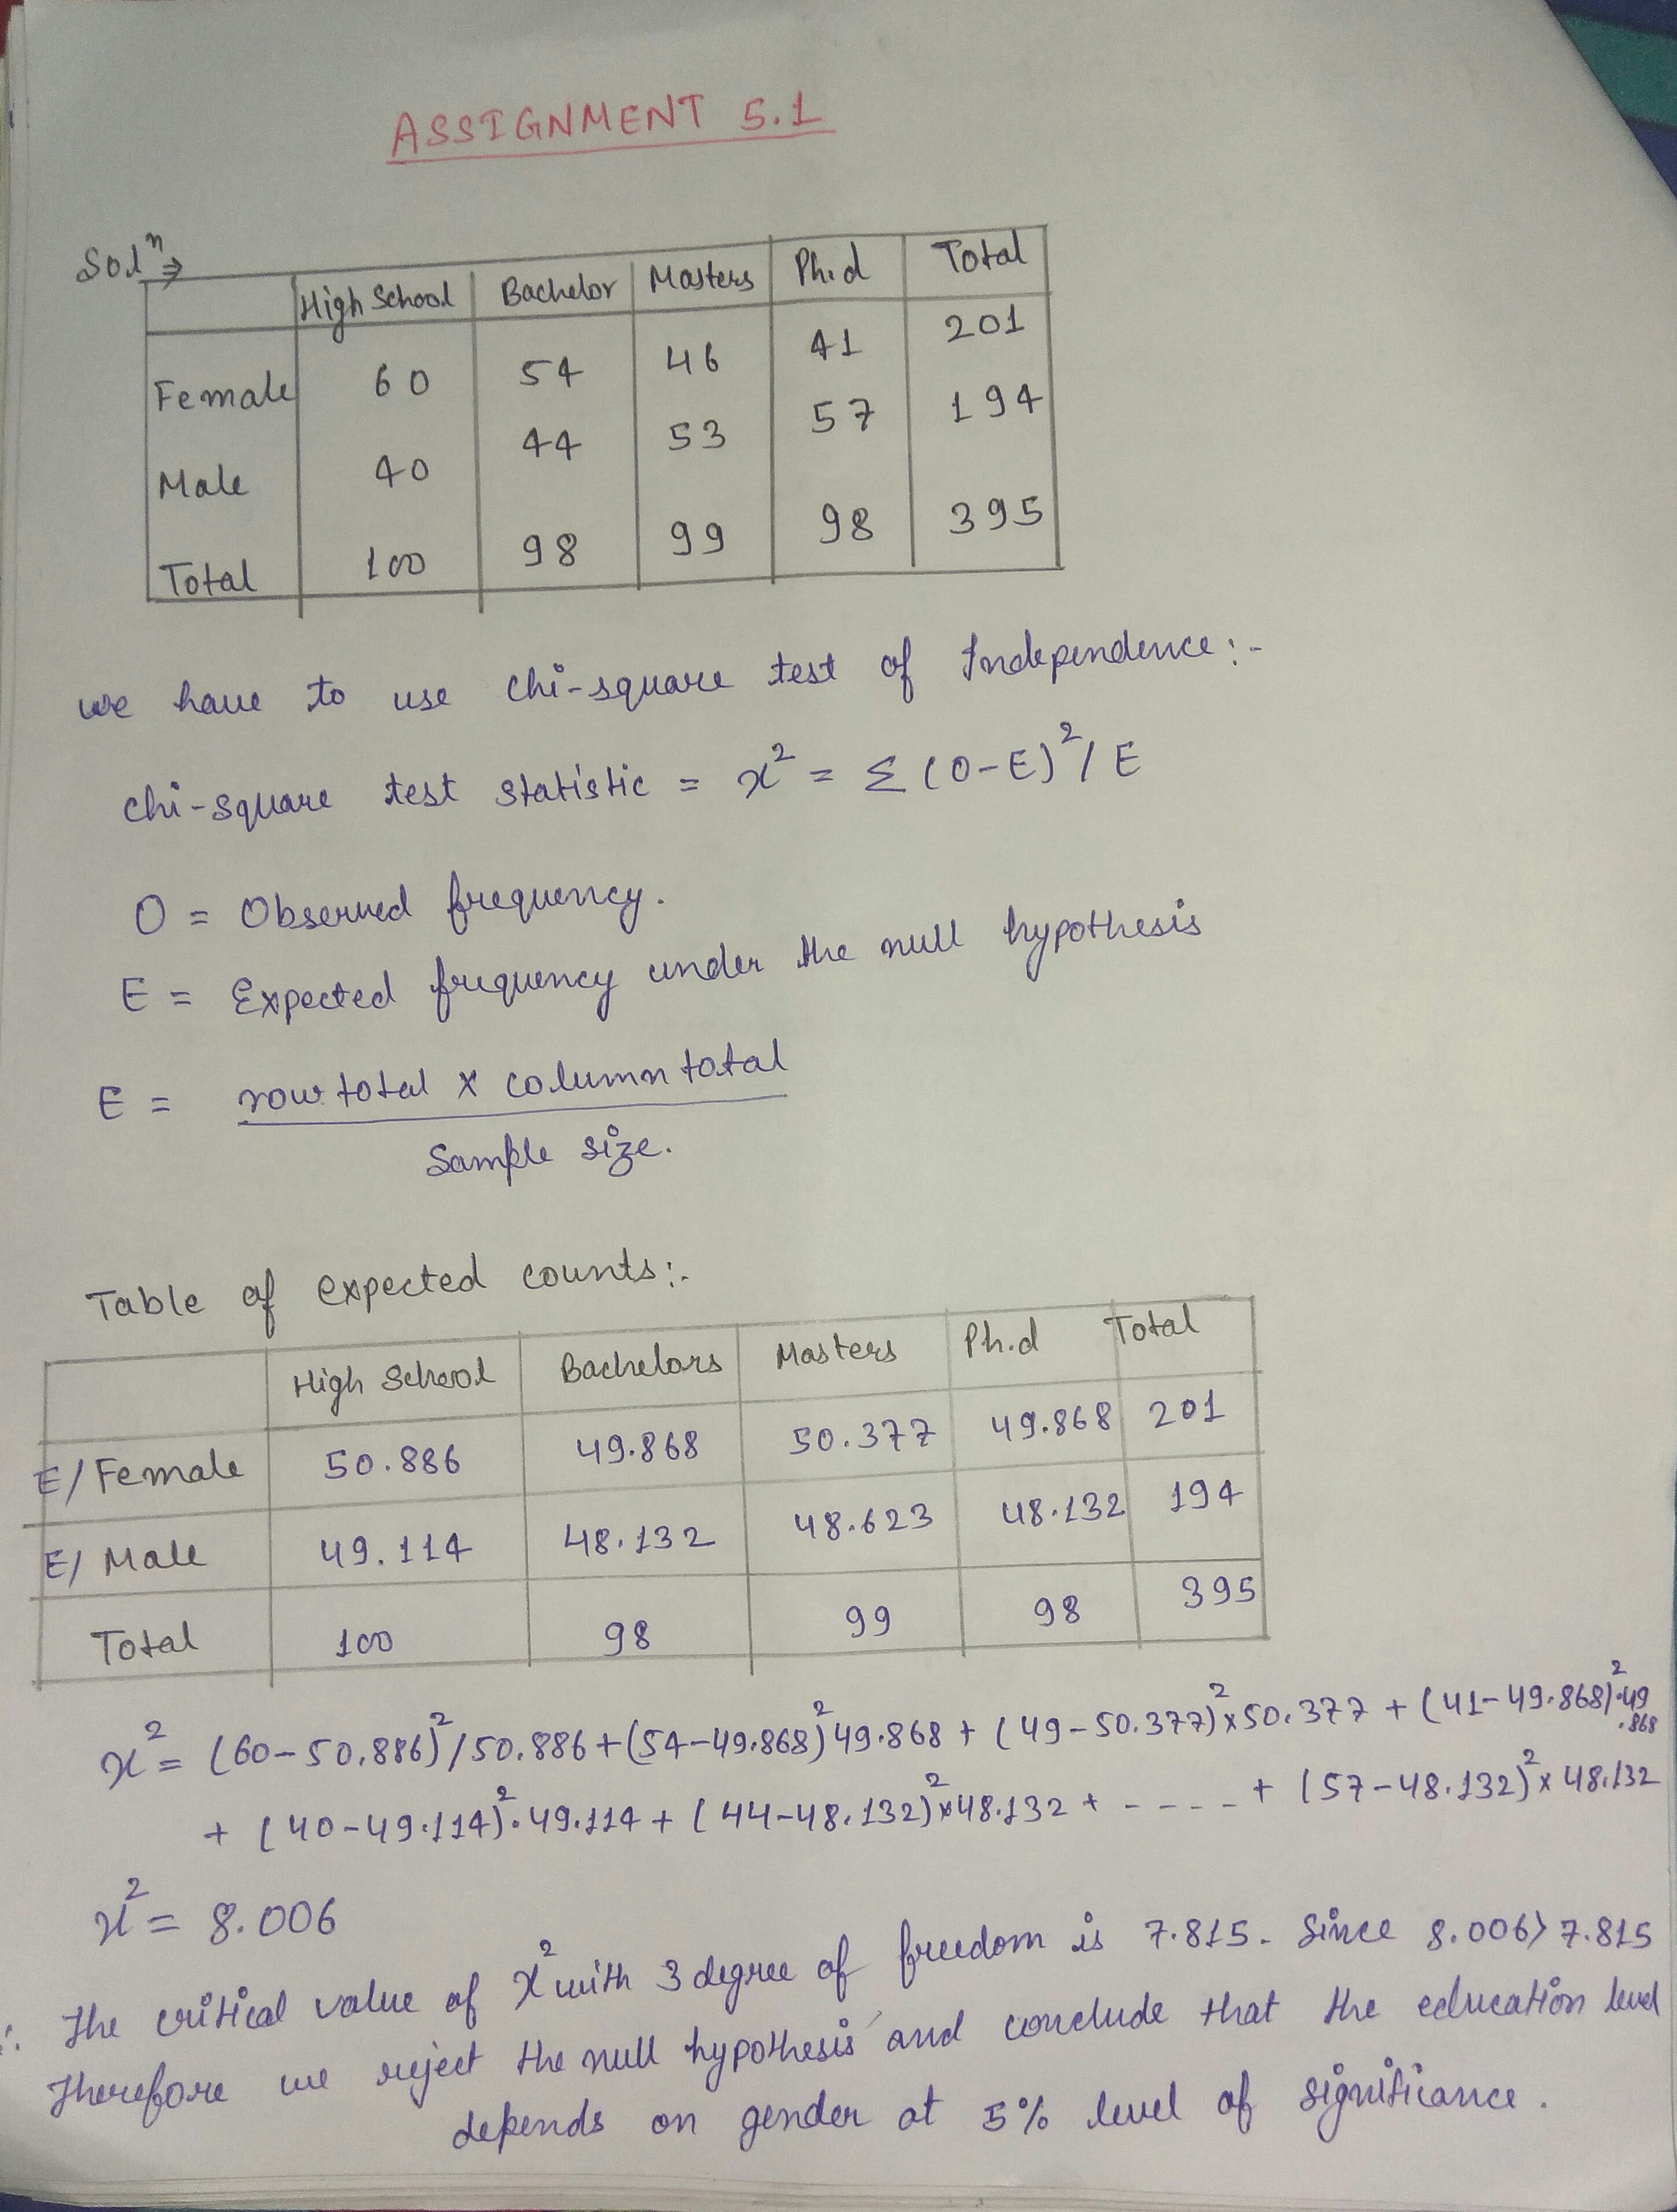 ASSIGNMENT 5.1
Solⁿ ⇒
High School Bachelor Masters Ph.d Total
Female 60 54 46 41 201
Male 40 44 53 57 194
Total 100 98 99 98 395
we have to use chi-square test of Independence:-
chi-square test statistic = x² = Σ (O-E)² / E
O = Observed frequency.
E = Expected frequency under the null hypothesis
E = row total x column total
Sample size.
Table of expected counts:-
High School Bachelors Masters Ph.d Total
E/Female 50.886 49.868 50.377 49.868 201
E/ Male 49.114 48.132 48.623 48.132 194
Total 100 98 99 98 395
x² = (60-50.886)²/50.886+(54-49.868)²49.868+ (49-50.377)²x50.377 + (41-49.868)².49.868
+ (40-49.114)².49.114 + (44-48.132)²x48.132 + - - - - + (57-48.132)²x 48.132
x² = 8.006
∴ The critical value of x² with 3 degree of freedom is 7.815. Since 8.006>7.815
Therefore we reject the null hypothesis and conclude that the education level
depends on gender at 5% level of significance.